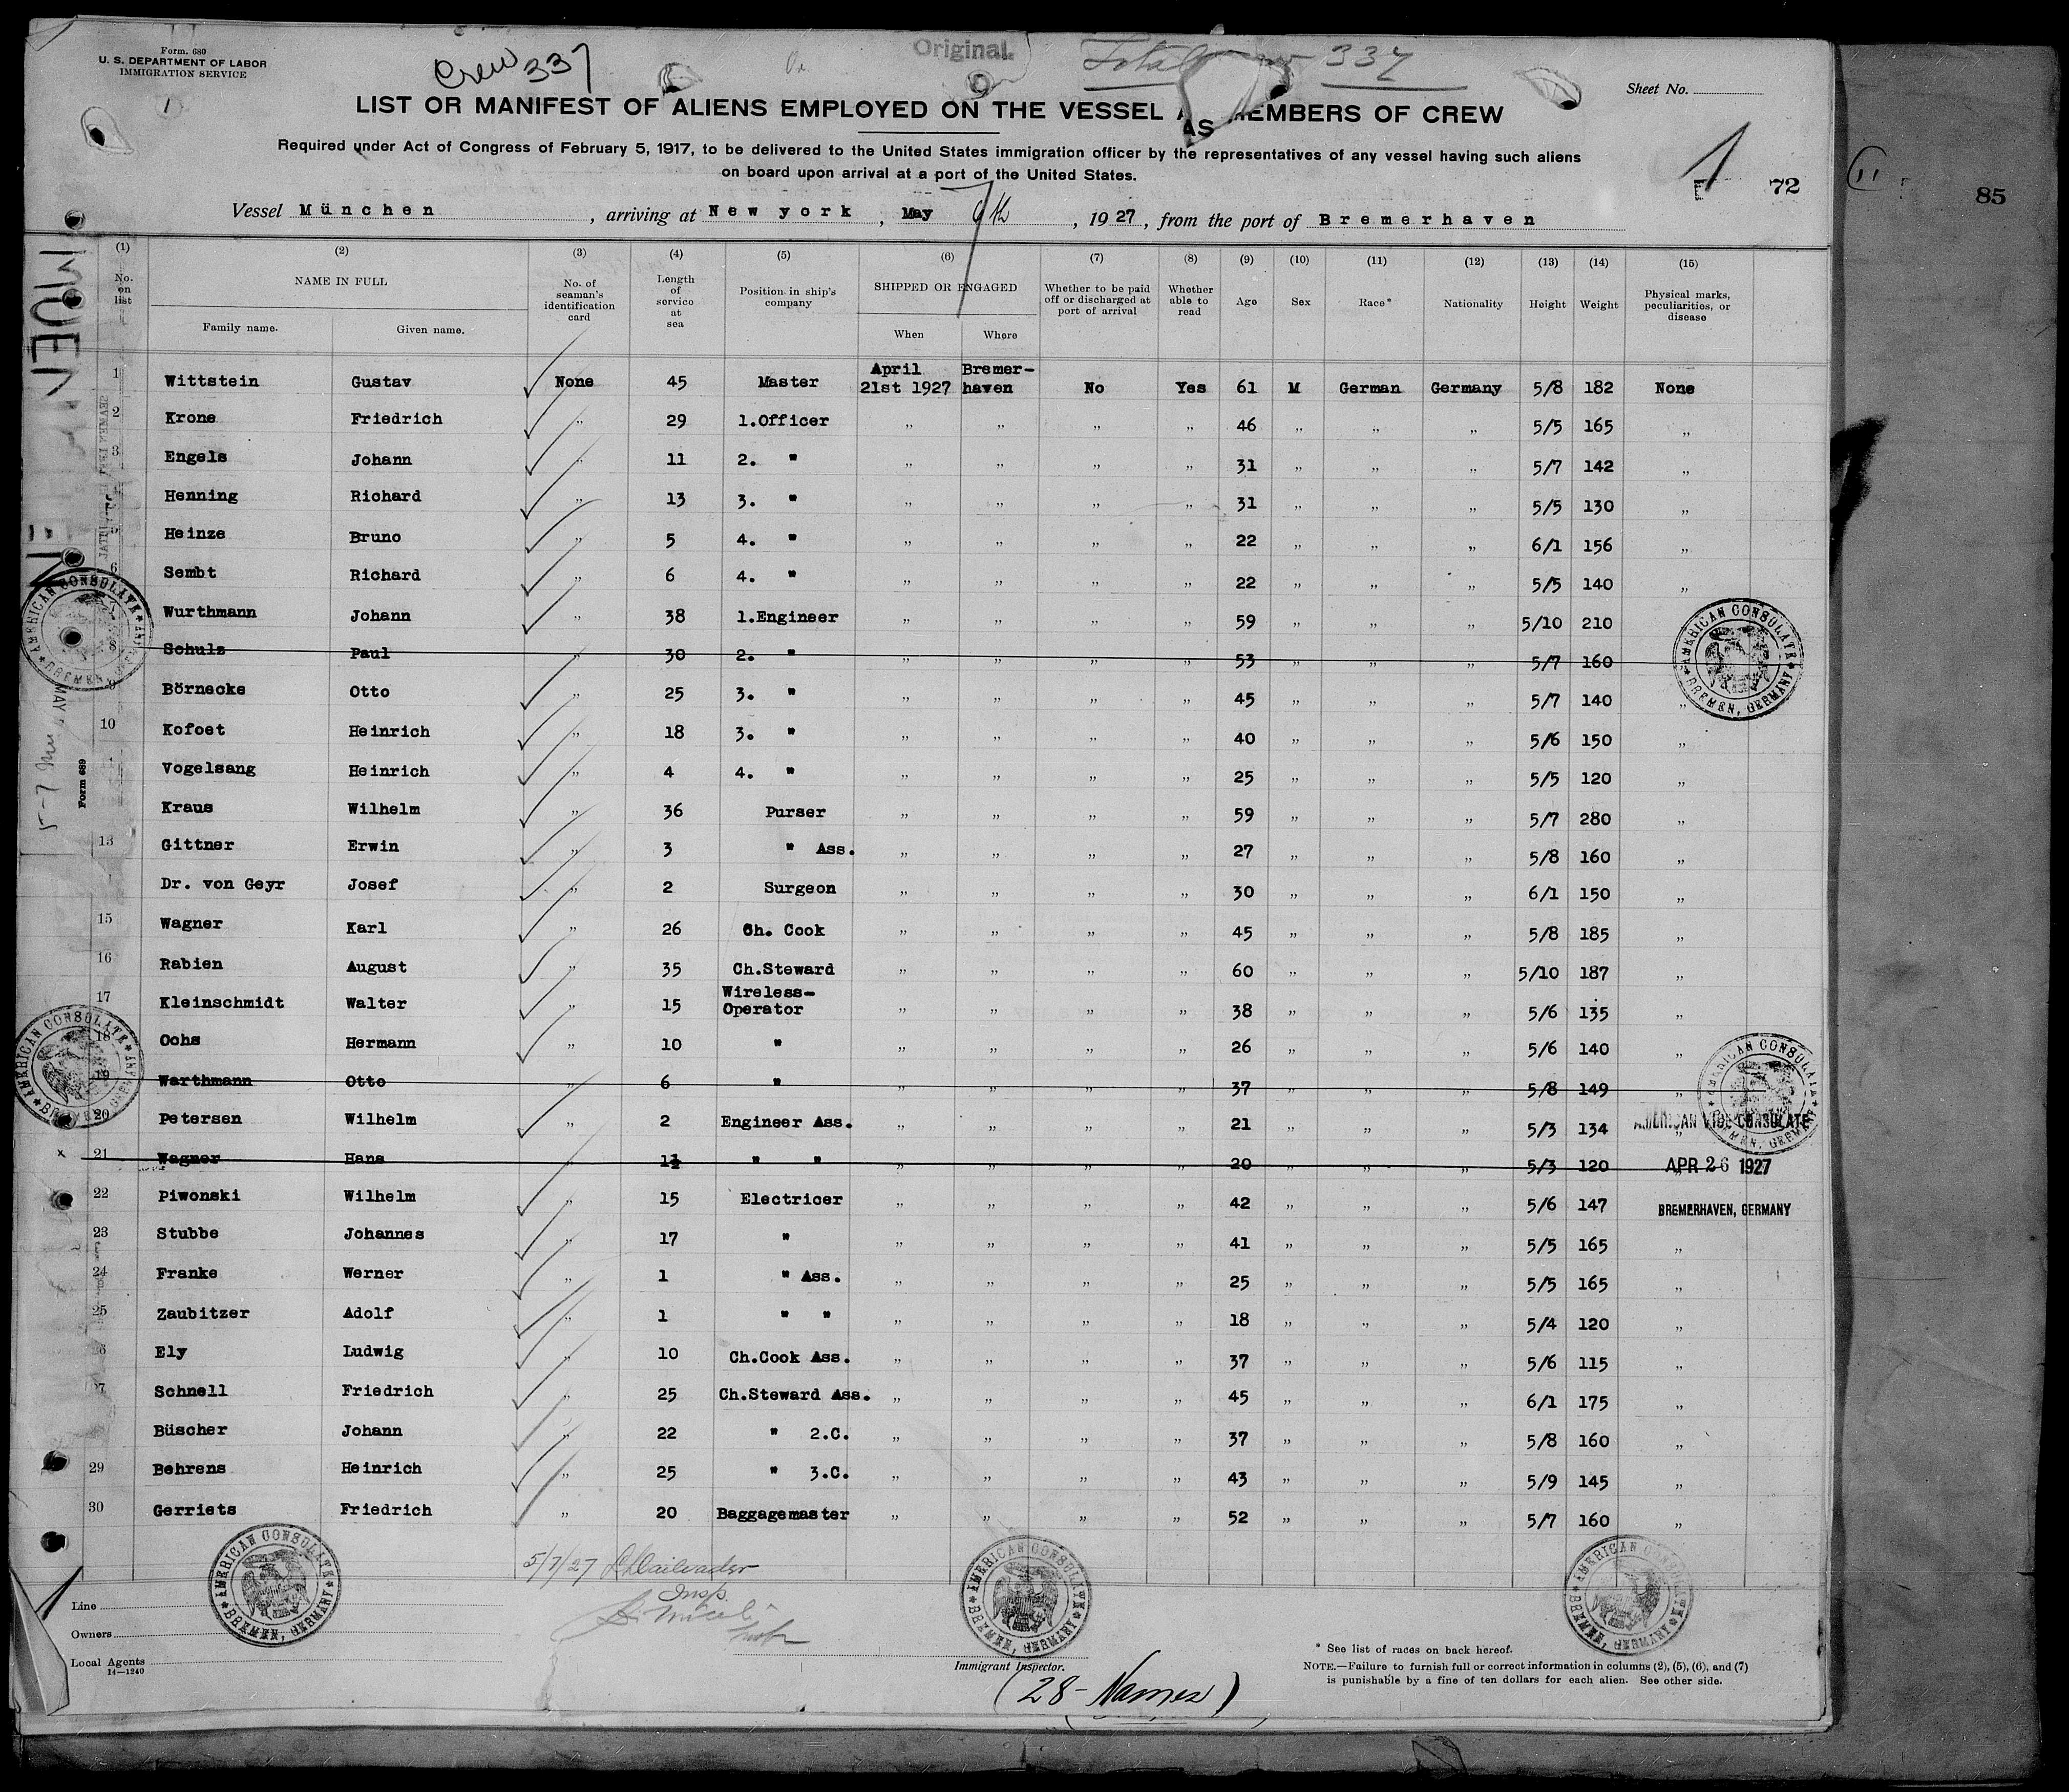 Form. 680
U. S. DEPARTMENT OF LABOR
IMMIGRATION SERVICE
Crew 337
Original
Total 337
Sheet No.
1
LIST OR MANIFEST OF ALIENS EMPLOYED ON THE VESSEL AS MEMBERS OF CREW
Required under Act of Congress of February 5, 1917, to be delivered to the United States immigration officer by the representatives of any vessel having such aliens
on board upon arrival at a port of the United States.
1
72
11
85
Vessel München, arriving at New york, May 7th, 1927, from the port of Bremerhaven
(1) (2) (3) (4) (5) (6) (7) (8) (9) (10) (11) (12) (13) (14) (15)
No. on list
NAME IN FULL
Family name. Given name.
No. of seaman's identification card
Length of service at sea
Position in ship's company
SHIPPED OR ENGAGED
When Where
Whether to be paid off or discharged at port of arrival
Whether able to read
Age Sex Race* Nationality Height Weight
Physical marks, peculiarities, or disease
1 Wittstein Gustav None 45 Master April 21st 1927 Bremer-haven No Yes 61 M German Germany 5/8 182 None
2 Krone Friedrich " 29 1.Officer " " " " 46 " " " 5/5 165 "
3 Engels Johann " 11 2. " " " " " 31 " " " 5/7 142 "
Henning Richard " 13 3. " " " " " 31 " " " 5/5 130 "
Heinze Bruno " 5 4. " " " " " 22 " " " 6/1 156 "
6 Sembt Richard " 6 4. " " " " " 22 " " " 5/5 140 "
Wurthmann Johann " 38 1.Engineer " " " " 59 " " " 5/10 210
8 Schulz Paul " 30 2. " " " " " 53 " " " 5/7 160
9 Börnecke Otto " 25 3. " " " " " 45 " " " 5/7 140 "
10 Kofoet Heinrich " 18 3. " " " " " 40 " " " 5/6 150 "
Vogelsang Heinrich " 4 4. " " " " " 25 " " " 5/5 120 "
Kraus Wilhelm " 36 Purser " " " " 59 " " " 5/7 280 "
13 Gittner Erwin " 3 " Ass. " " " " 27 " " " 5/8 160 "
Dr. von Geyr Josef " 2 Surgeon " " " " 30 " " " 6/1 150 "
15 Wagner Karl " 26 Ch. Cook " " " " 45 " " " 5/8 185 "
16 Rabien August " 35 Ch.Steward " " " " 60 " " " 5/10 187 "
17 Kleinschmidt Walter " 15 Wireless-Operator " " " " 38 " " " 5/6 135 "
18 Ochs Hermann " 10 " " " " " 26 " " " 5/6 140 "
19 Warthmann Otto " 6 " " " " " 37 " " " 5/8 149 "
20 Petersen Wilhelm " 2 Engineer Ass. " " " " 21 " " " 5/3 134 "
x 21 Wagner Hans 1½ " " " " " " 20 " " " 5/3 120 "
22 Piwonski Wilhelm " 15 Electricer " " " " 42 " " " 5/6 147
23 Stubbe Johannes " 17 " " " " " 41 " " " 5/5 165 "
24 Franke Werner " 1 " Ass. " " " " 25 " " " 5/5 165 "
25 Zaubitzer Adolf " 1 " " " " " " 18 " " " 5/4 120 "
Ely Ludwig " 10 Ch.Cook Ass. " " " " 37 " " " 5/6 115 "
Schnell Friedrich " 25 Ch.Steward Ass. " " " " 45 " " " 6/1 175 "
Büscher Johann " 22 " 2.C. " " " " 37 " " " 5/8 160 "
29 Behrens Heinrich " 25 " 3.C. " " " " 43 " " " 5/9 145 "
30 Gerriets Friedrich " 20 Baggagemaster " " " " 52 " " " 5/7 160 "
AMERICAN CONSULATE
BREMEN, GERMANY
AMERICAN CONSULATE
BREMEN, GERMANY
AMERICAN CONSULATE
BREMEN, GERMANY
AMERICAN CONSULATE
BREMEN, GERMANY
AMERICAN VICE CONSULATE
APR 26 1927
BREMERHAVEN, GERMANY
MUEN
MAY
Form 689
5-7
5/7/27
Insp.
AMERICAN CONSULATE
BREMEN, GERMANY
AMERICAN CONSULATE
BREMEN, GERMANY
AMERICAN CONSULATE
BREMEN, GERMANY
Line
Owners
Local Agents
14—1240
Immigrant Inspector.
(28- Names)
* See list of races on back hereof.
NOTE.—Failure to furnish full or correct information in columns (2), (5), (6), and (7)
is punishable by a fine of ten dollars for each alien. See other side.